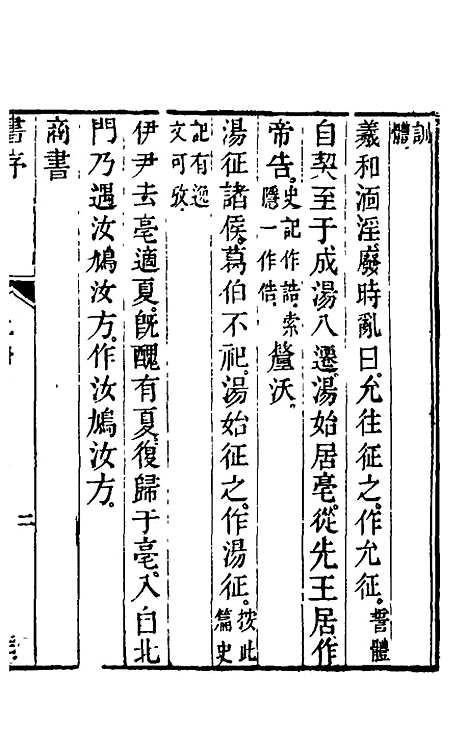 訓
體
羲和湎淫廢時亂日允往征之作允征誓體
自契至于成湯八遷湯始居亳從先王居作
帝告史記作誥索隱一作俈釐沃
湯征諸侯葛伯不祀湯始征之作湯征按此篇史
記有逸文可攷
伊尹去亳適夏旣醜有夏復歸于亳入自北
門乃遇汝鳩汝方作汝鳩汝方
商書
書序
二